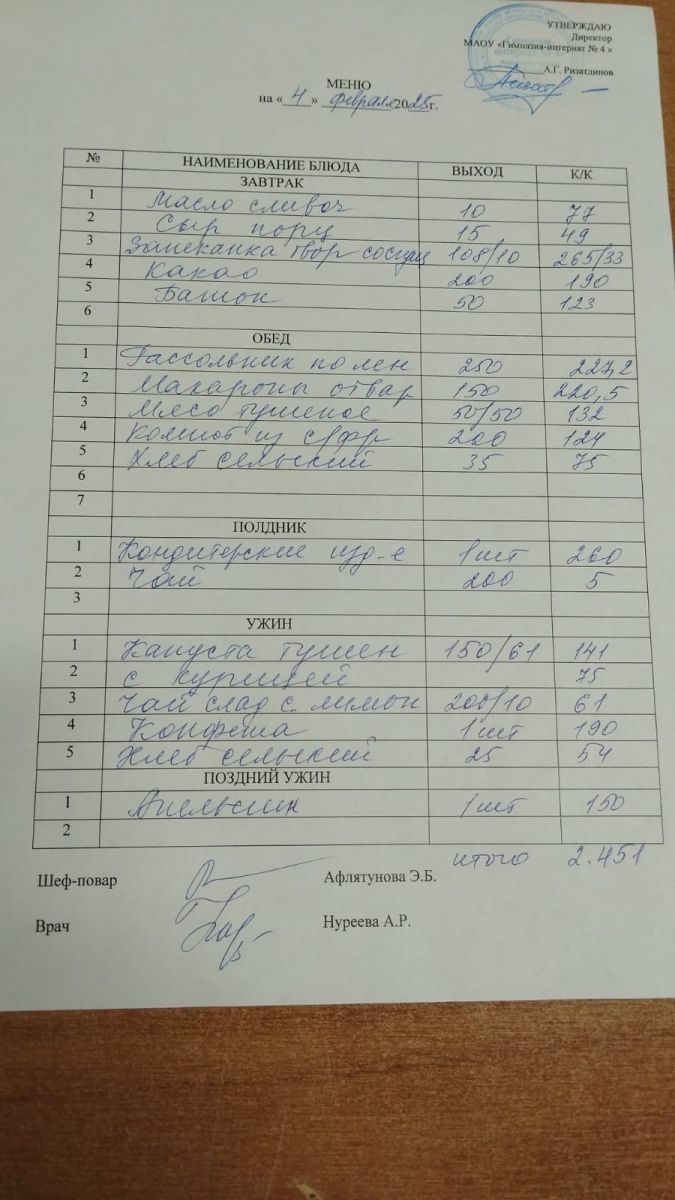 УТВЕРЖДАЮ
Директор
МАОУ «Гимназия-интернат № 4 »
А.Г. Ризатдинов
МЕНЮ
на « 4 » февраля 2025г.
№ НАИМЕНОВАНИЕ БЛЮДА ВЫХОД К/К
ЗАВТРАК
1 Масло сливоч 10 77
2 Сыр порц 15 49
3 Запеканка твор со сгущ 108/10 265/33
4 Какао 200 190
5 Батон 50 123
6
ОБЕД
1 Рассольник по лен 250 227,2
2 Макароны отвар 150 220,5
3 Мясо тушеное 50/50 132
4 Компот из с/фр 200 124
5 Хлеб сельский 35 75
6
7
ПОЛДНИК
1 Кондитерские изд-е 1 шт 260
2 Чай 200 5
3
УЖИН
1 Капуста тушен 150/61 141
2 с курицей 75
3 Чай слад с лимон 200/10 61
4 Конфета 1 шт 190
5 Хлеб сельский 25 54
ПОЗДНИЙ УЖИН
1 Апельсин 1 шт 150
2
итого 2.451
Шеф-повар Афлятунова Э.Б.
Врач Нуреева А.Р.